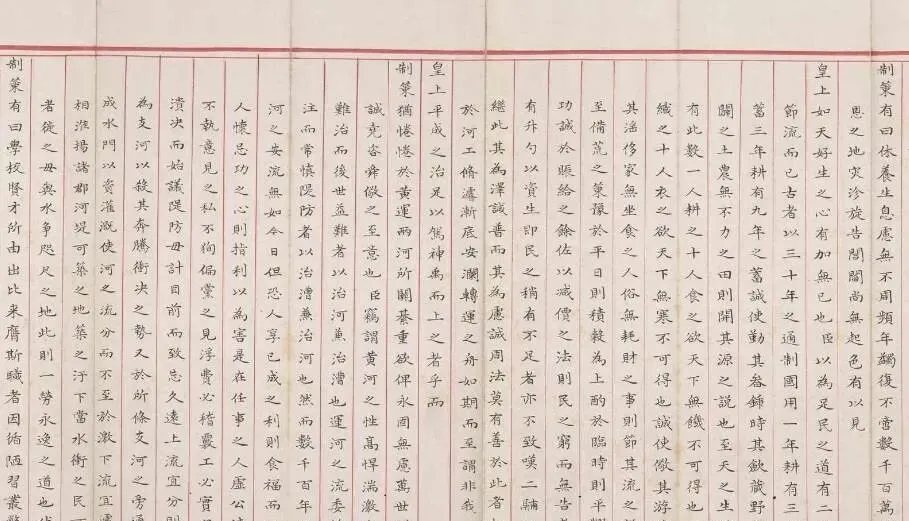 制策有曰休養生息慮無不周頻年蠲復不啻數千百萬
恩之地灾沴旋告閭閻尚無起色有以見
皇上如天好生之心有加無已也臣以為足民之道有二
節流而已古者以三十年之通制國用一年耕有三
蓄三年耕有九年之蓄誠使勤其畚鍤時其飲蔵野
闢之土農無不力之田則開其源之說也至天之生
有此數一人耕之十人食之欲天下無饑不可得也
織之十人衣之欲天下無寒不可得也誠使儆其游
其淫侈家無坐食之人俗無耗財之事則節其流之
至備荒之策豫於平日則積穀為上酌於臨時則平
功誠於賑給之餘佐以減價之法則民之窮而無告
有升勺以資生即民之稍有不足者亦不致嘆二鬴
繼此其為澤誠普而其為慮誠周法莫有善於此者
於河工脩濬漸底安瀾轉運之舟如期而至謂非我
皇上平成之治足以駕神禹而上之者乎而
制策猶惓惓於黃運兩河所關綦重欲俾永固無慮萬世
誠堯咨舜儆之至意也臣竊謂黃河之性髙悍湍激
難治而後世益難者以治河兼治漕也運河之流委
注而常慎隄防者以治漕兼治河也然而數千百年
河之安流無如今日但恐人享已成之利則食福而
人懷忌功之心則指利以為害是在任事之人虛公
不執意見之私不狥偏黨之見浮費必稽覈工必實
潰决而始議隄防毋計目前而致忘久遠上流宜分則
為支河以殺其奔騰衝决之勢又於所條支河之旁
成水門以資灌溉使河之流分而不至於激下流宜
相淮揚諸郡河堤可築之地築之汙下當水衝之民
者徙之毋與水爭咫尺之地此則一勞永逸之道也
制策有曰學校賢才所由出比来膺斯職者因循陋習叢